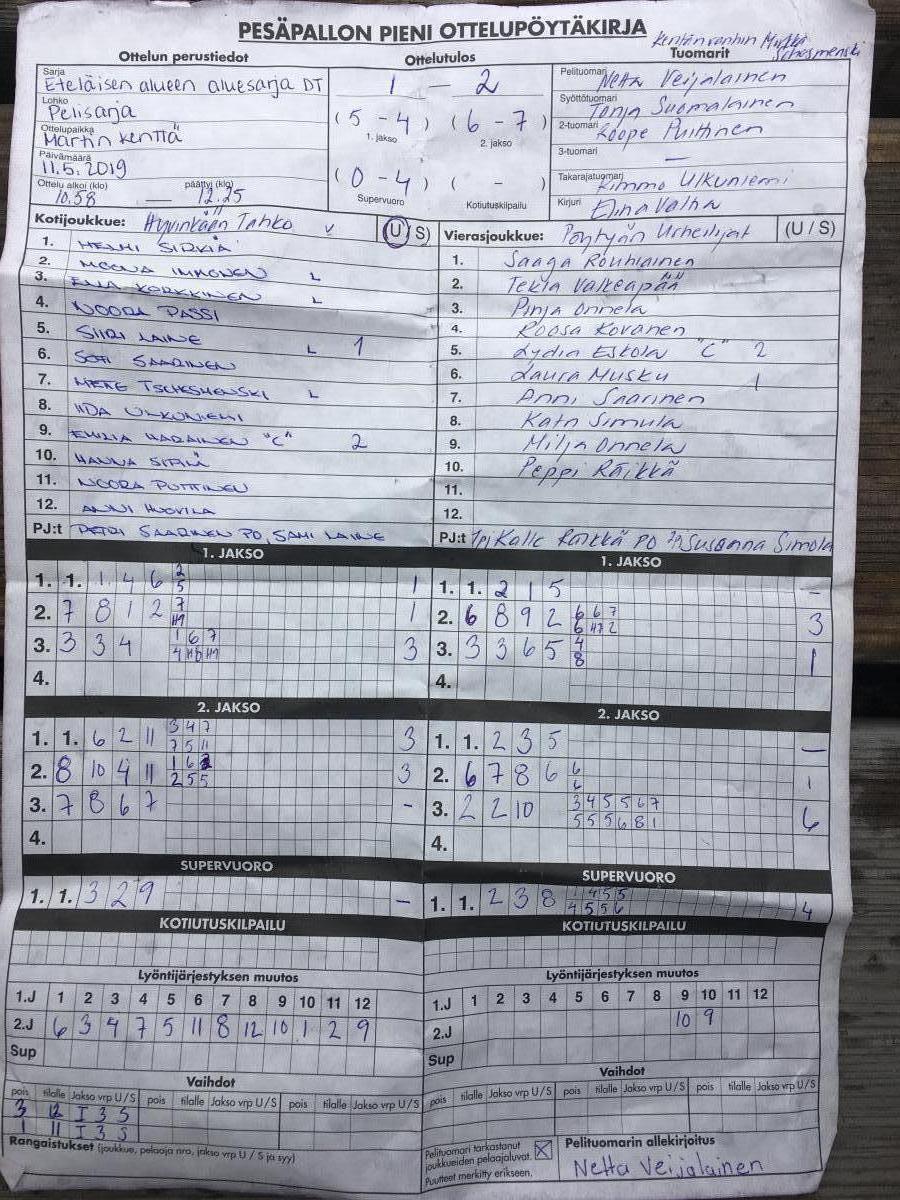 PESÄPALLON PIENI OTTELUPÖYTÄKIRJA
Kentän vanhin
Ottelun perustiedot
Ottelutulos
Tuomarit
Sarja
Eteläisen alueen aluesarja DT
Lohko
Pelisarja
Ottelupaikka
Martin kenttä
Päivämäärä
11.5.2019
Ottelu alkoi (klo) päättyi (klo)
10.58 — 12.25
1 — 2
(5 - 4) (6 - 7)
1. jakso 2. jakso
(0 - 4) ( - )
Supervuoro Kotiutuskilpailu
Pelituomari
Netta Veijalainen
Syöttötuomari
Tonja Suomalainen
2-tuomari
Roope Puttinen
3-tuomari
—
Takarajatuomari
Kimmo Ulkuniemi
Kirjuri
Elina Valha
Kotijoukkue: Hyvinkään Tahko v (U/S)
1. HELMI SIRKIÄ
2. MOONA IMMONEN L
3. ENJA KORKKINEN L
4. NOORA PASSI
5. SIIRI LAINE L 1
6. SOFI SAARINEN
7. MERE TSCHESMENSKI L
8. IIDA ULKUNIEMI
9. EMILIA HARAINEN "C" 2
10. HANNA
11. NOORA PUTTINEN
12. ANNI HUOVILA
PJ:t PETRI SAARINEN PO, SAMI LAINE
Vierasjoukkue: Pöytyän Urheilijat (U/S)
1. Saaga Rouhiainen
2. Tekla Valkeapää
3. Pinja Onnela
4. Roosa Kovanen
5. Lydia Eskola "C" 2
6. Laura Musku 1
7. Anni Saarinen
8. Kata Simula
9. Milja Onnela
10. Peppi Räikkä
11.
12.
PJ:t Kalle Räikkä PO Susanna Simola
1. JAKSO
1. 1. 1 4 6 2 1
5
2. 7 8 1 2 7 1
3. 3 3 4 1 6 7 3
4.
1. JAKSO
1. 1. 2 1 5 -
2. 6 8 9 2 6 6 7 3
3. 3 3 6 5 4 1
8
4.
2. JAKSO
1. 1. 6 2 11 3 4 7 3
7 5 11
2. 8 10 4 11 1 6 3
2 5 5
3. 7 8 6 7 -
4.
2. JAKSO
1. 1. 2 3 5 —
2. 6 7 8 6 6 1
6
3. 2 2 10 3 4 5 5 6 7 6
5 5 5 6 8 1
4.
SUPERVUORO
1. 1. 3 2 9 -
SUPERVUORO
1. 1. 2 3 8 1 4 5 5 4
4 5 5 6
KOTIUTUSKILPAILU
KOTIUTUSKILPAILU
Lyöntijärjestyksen muutos
1.J 1 2 3 4 5 6 7 8 9 10 11 12
2.J 6 3 4 7 5 11 8 12 10 1 2 9
Sup
Lyöntijärjestyksen muutos
1.J 1 2 3 4 5 6 7 8 9 10 11 12
2.J 10 9
Sup
Vaihdot
pois tilalle Jakso vrp U/S pois tilalle Jakso vrp U/S pois tilalle Jakso vrp U/S
3 12 I 3 S
1 11 I 3 S
Vaihdot
pois tilalle Jakso vrp U/S pois tilalle Jakso vrp U/S pois tilalle Jakso vrp U/S
Rangaistukset (joukkue, pelaaja nro, jakso vrp U / S ja syy)
Pelituomari tarkastanut
joukkueiden pelaajaluvat.
Puutteet merkitty erikseen.
Pelituomarin allekirjoitus
Netta Veijalainen